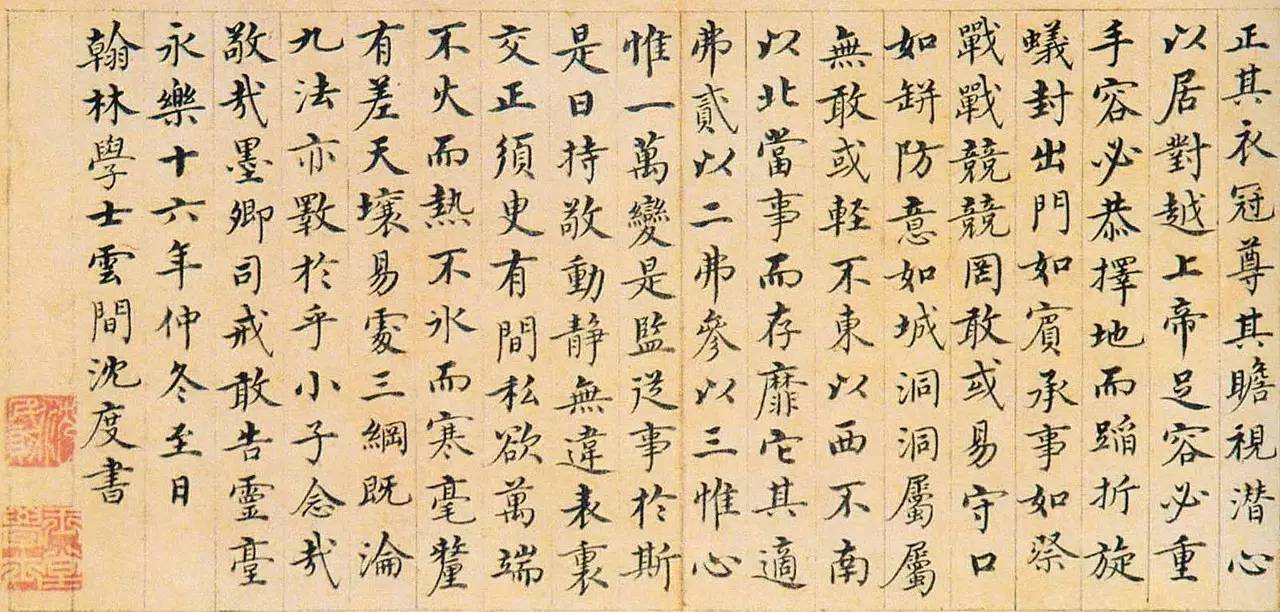 正其衣冠尊其瞻視潜心
以居對越上帝足容必重
手容必恭擇地而蹈折旋
蟻封出門如賓承事如祭
戰戰競競罔敢或易守口
如缾防意如城洞洞屬屬
無敢或輕不東以西不南
以北當事而存靡它其適
弗貳以二弗參以三惟心
惟一萬變是監從事於斯
是曰持敬動静無違表裏
交正須臾有間私欲萬端
不火而熱不氷而寒毫釐
有差天壤易處三綱既淪
九法亦斁於乎小子念哉
敬哉墨卿司戒敢告靈臺
永樂十六年仲冬至日
翰林學士雲間沈度書